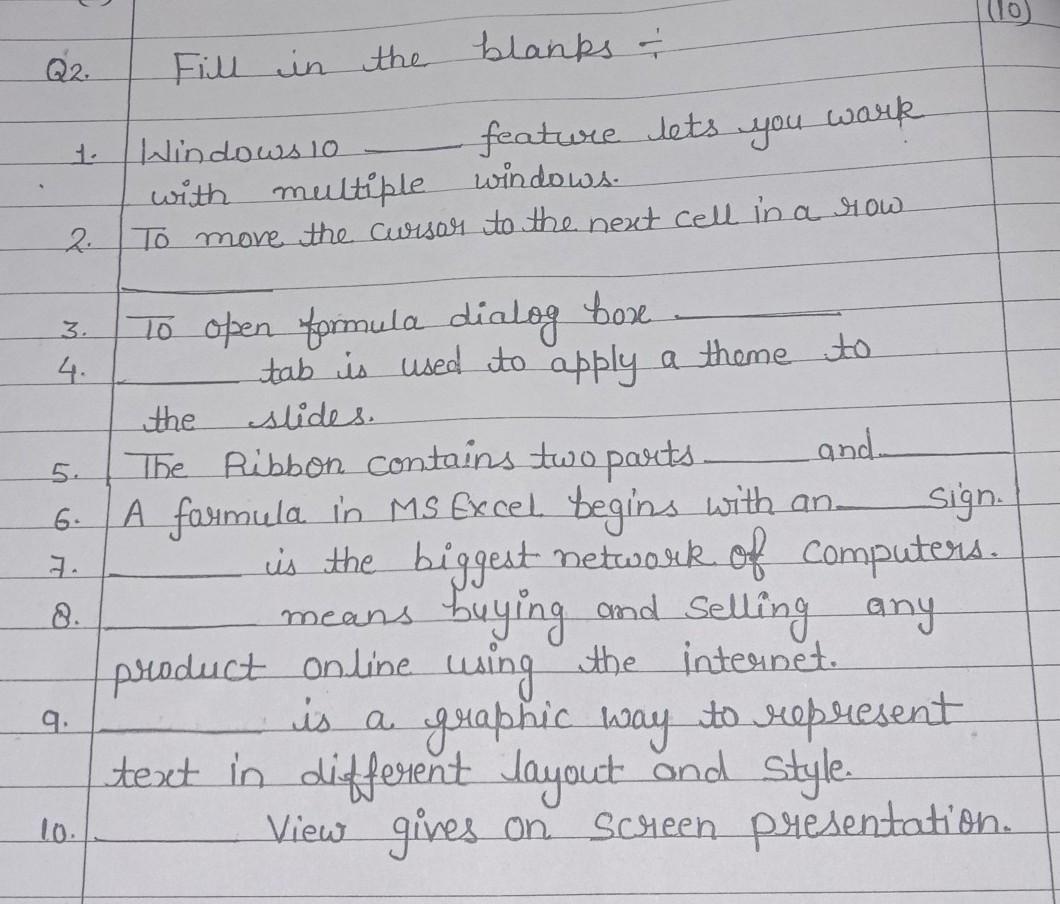 (10)
Q2. Fill in the blanks ÷
1. Windows 10 ____ feature lets you work
with multiple windows.
2. To move the cursor to the next cell in a row
____
3. To open formula dialog box ____
4. ____ tab is used to apply a theme to
the slides.
5. The Ribbon contains two parts ____ and ____
6. A formula in MS Excel begins with an ____ sign.
7. ____ is the biggest network of computers.
8. ____ means buying and selling any
product online using the internet.
9. ____ is a graphic way to represent
text in different layout and style.
10. ____ View gives on screen presentation.